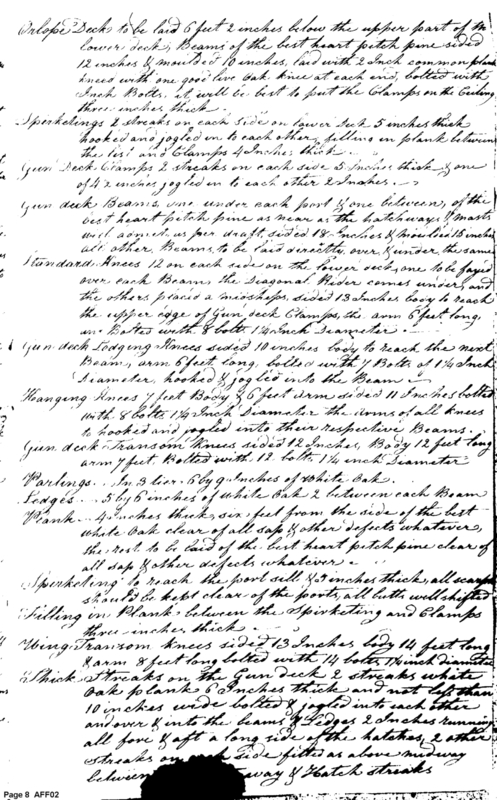 Orlope Deck to be laid 6 feet 2 inches below the upper part of the
lower deck, Beams of the best heart pitch pine sided
12 inches & moulded 10 inches, laid with 2 Inch common plank
kneed with one good live Oak knee at each end, bolted with
Inch Bolts. it will be best to put the Clamps on the Ceiling
three inches thick
Sperketings 2 streaks on each side on lower Deck 5 inches thick
hooked and jogled in to each other, filling in plank between
the last and Clamps 4 Inches thick
Gun Deck Clamps 2 streaks on each side 5 Inches thick & one
of 4½ inches jogled in to each other 2 Inches.
Gun deck Beams, one under each port & one between, of the
best heart pitch pine as near as the hatchways & masts
will admit as per draft, sided 18 Inches & moulded 15 inches
all other Beams to be laid directly over & under the same
Standard Knees 12 on each side on the lower deck, one to be fayed
over each Beam the Diagonal Rider comes under, and
the others placed a midships, sided 13 Inches body to reach
the upper edge of Gun deck Clamps, the arm 6 feet long,
and Bolted with 8 bolts 1¼ Inch Diameter
Gun deck Lodging Knees sided 10 inches body to reach the next
Beam, arm 6 feet long, bolted with 7 Bolts of 1¼ Inch
Diameter, hooked & jogled into the Beam
Hanging Knees 7 feet Body & 6 feet Arm sided 11 Inches bolted
with 8 bolts 1¼ Inch Diameter the arms of all knees
to hooked and jogled into their respective Beams.
Gun deck Transom knees sided 12 Inches, Body 12 feet long
arm 7 feet, Bolted with 12 bolts 1¼ inch Diameter
Carlings. In 3 tier. 6 by 9 Inches of White Oak.
Ledges. 5 by 6 inches of white Oak 2 between each Beam
Plank 4 inches thick, six feet from the side of the best
white Oak clear of all sap & other defects whatever,
the rest to be laid of the best heart pitch pine clear of
all sap & other defects whatever
Sperketing to reach the port sill & 5 inches thick, all scarphs
should be kept clear of the ports, all butts well shifted
Filling in Plank between the Spirketing and Clamps
three inches thick
Wing Transom knees sided 13 Inches body 14 feet long
& arm 8 feet long bolted with 14 bolts, 1¼ inch diameter
Thick Streaks on the Gun deck 2 streaks white
Oak plank 6 Inches thick and not less than
10 inches wide bolted & jogled into each other
and over & into the beams & Ledges 2 Inches running
all fore & aft a long side of the hatches, 2 other
streaks on each side fitted as above midway
between way & Hatch streaks
Page 8 AFF02